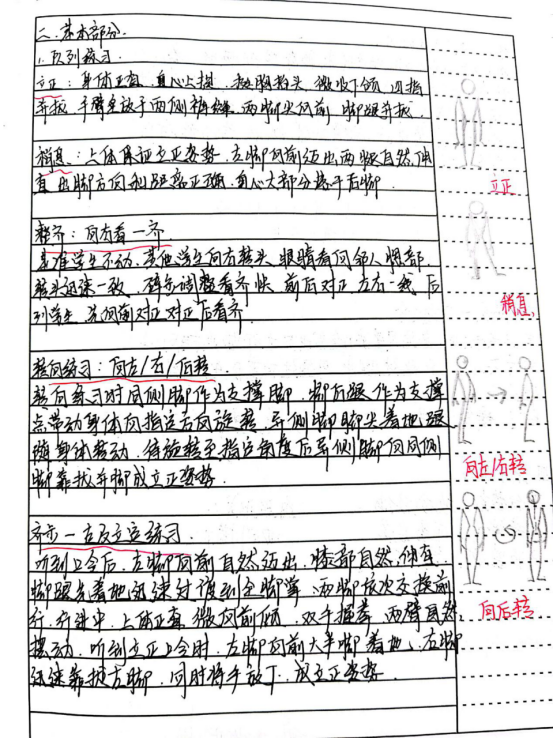 二、基本部分.
1. 队列练习.
立正：身体正直 重心上提. 挺胸抬头 微收下颌 四指
并拢 手臂垂放于两侧裤缝. 两脚尖向前 脚跟并拢.
稍息：上体保证立正姿势. 左脚向前迈出两 自然伸
直 出脚方向和距离正确. 重心大部分 于后脚.
整齐：向右看一齐.
基准学生不动. 其他学生向右转头 眼睛看向邻人 部.
转头迅速一致. 碎步调整看齐快 前后对正 左右一线 后
列学生 先向前对正 对正后看齐
转向练习：向左/右/后转.
转向练习时同侧脚作为支撑脚. 脚后跟作为支撑
点带动身体向指定方向旋转 异侧脚脚尖着地 跟
随身体转动. 待旋转至指定角度后异侧脚向同侧
脚靠拢并脚成立正姿势.
齐步一 立定练习.
听到口令后. 左脚向前自然迈出. 膝部自然伸直
脚跟先着地迅速过渡到全脚掌 两脚依次交换前
行. 行进中. 上体正直 微向前倾. 双手握拳 两臂自然
摆动. 听到立正口令时. 左脚向前大半脚着地. 右脚
迅速靠拢左脚. 同时将手放下. 成立正姿势.
立正
稍息.
向左/右转
向后转